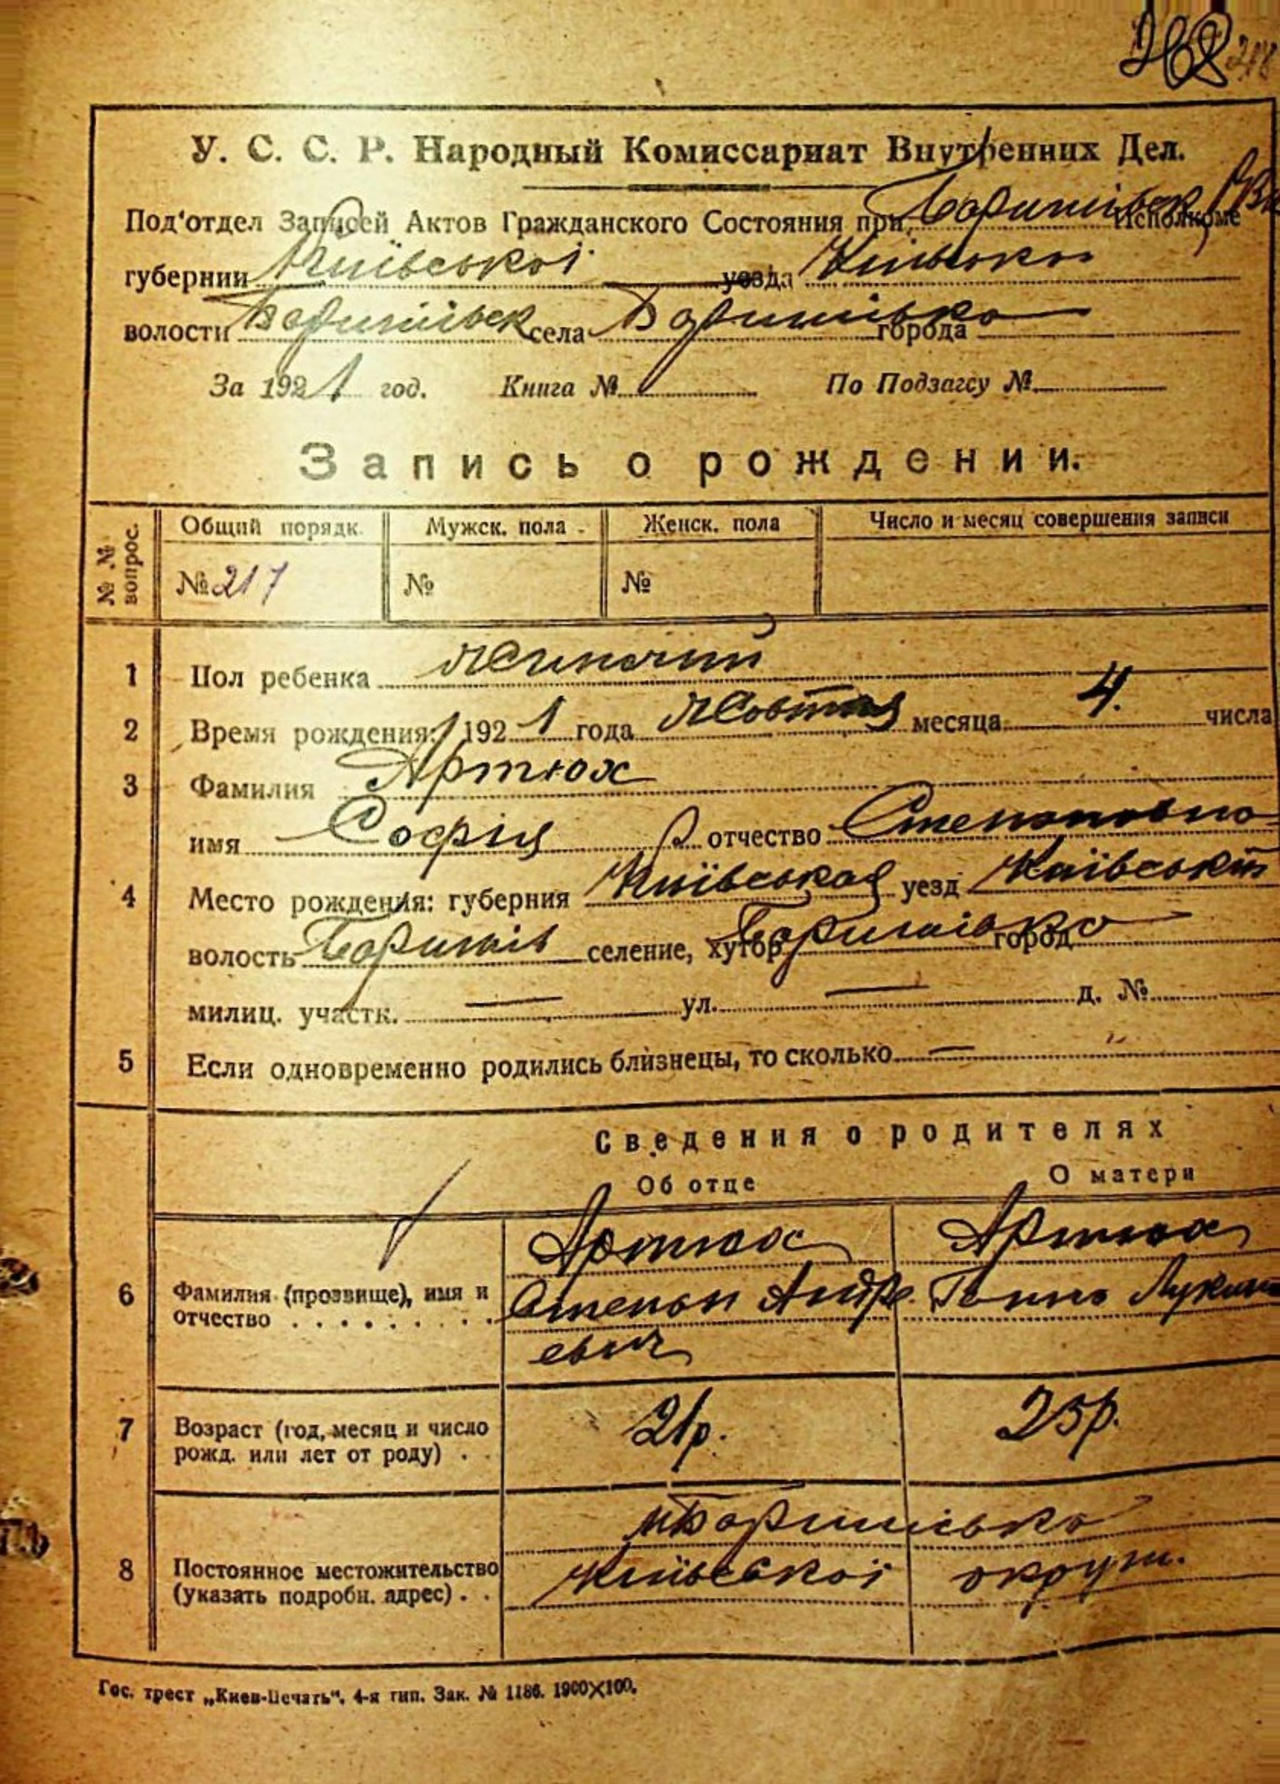 268 218
У. С. С. Р. Народный Комиссариат Внутренних Дел.
Под'отдел Записей Актов Гражданского Состояния при Баришівск Исполкоме
губернии Київської уезда Київсько
волости Баришівск села Баришівка города
За 1921 год. Книга № По Подзагсу №
Запись о рождении.
№№ вопрос. Общий порядк. Мужск. пола Женск. пола Число и месяц совершения записи
№ 217 № №
1 Пол ребенка жіночий
2 Время рождения: 1921 года Жовтня месяца 4. числа
3 Фамилия Артюх
имя Софія отчество Степановна
4 Место рождения: губерния Київська уезд Київський
волость Баришів селение, хутор Баришівка город
милиц. участк. — ул. — д. №
5 Если одновременно родились близнецы, то сколько —
Сведения о родителях
Об отце О матери
Артюх Артюх
6 Фамилия (прозвище), имя и Степан Андре Ганна
отчество евич
7 Возраст (год, месяц и число 21р. 25р.
рожд. или лет от роду)
м Баришівка
8 Постоянное местожительство Київської округи.
(указать подробн. адрес)
Гос. трест „Киев-Печать". 4-я тип. Зак. № 1186. 1900×100.